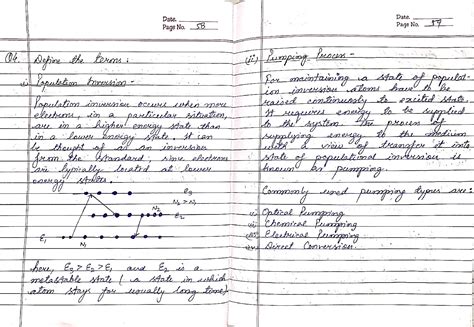 Date.
Page No. 58
Q6. Define the terms:
i) Population Inversion -
Population inversion occurs when more
electrons, in a particular situation,
are in a higher energy state than
in a lower energy state. It can
be thought of as an inversion
from the standard, since electrons
are typically located at lower
energy states.
E3
N2 > N1
N2
E2
E1
N1
here, E3 > E2 > E1 and E2 is a
metastable state (a state in which
atom stays for usually long time)
Date.
Page No.
ii) Pumping Process -
For maintaining a state of populat
ion inversion atoms have to be
raised continuously to excited state.
It requires energy to be supplied
to the system. The process of
supplying energy to the medium
with a view of transfer it into
state of populational inversion is
known as pumping.
Commonly used pumping types are:
Optical Pumping
Chemical Pumping
Electrical Pumping
Direct Conversion.